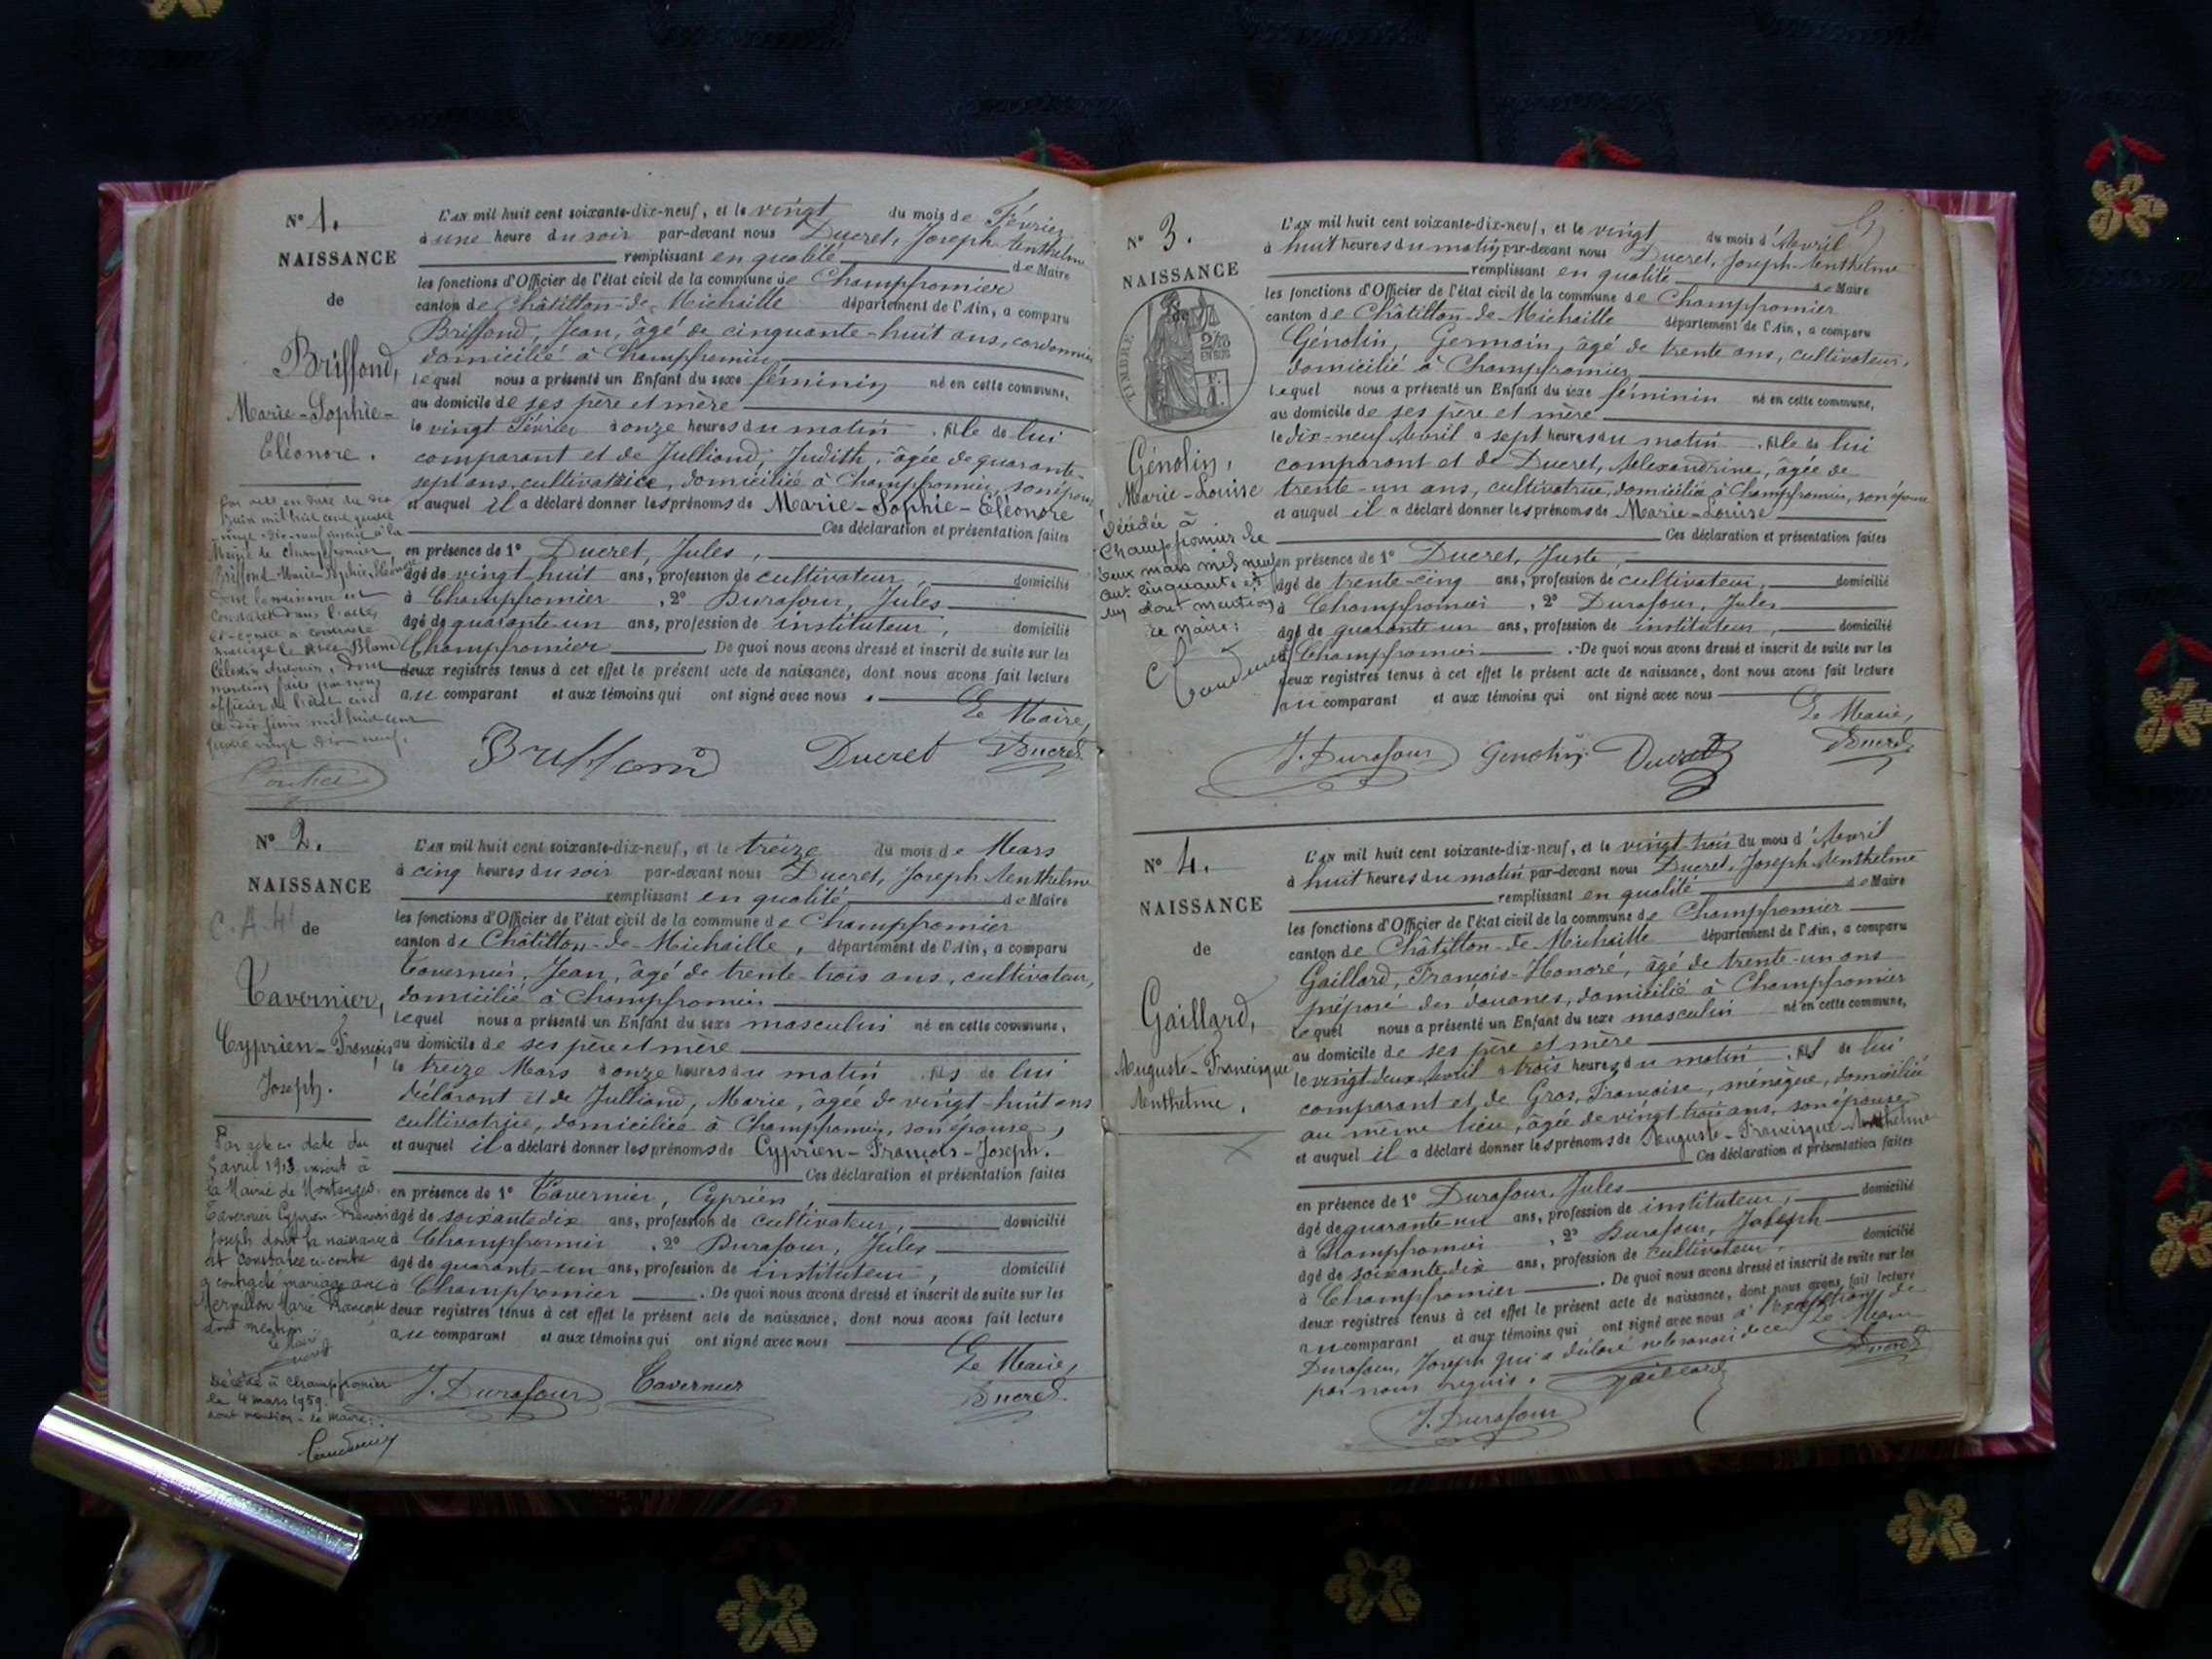 N° 1.
NAISSANCE
de
Briffond,
Marie-Sophie-
Eléonore.
L'an mil huit cent soixante-dix-neuf, et le vingt du mois de Février
à une heure du soir par-devant nous Ducret, Joseph-Anthelme
remplissant en qualité de Maire
les fonctions d'Officier de l'état civil de la commune de Champfromier
canton de Châtillon-de-Michaille département de l'Ain, a comparu
Briffond, Jean, âgé de cinquante-huit ans, cordonnier
domicilié à Champfromier
lequel nous a présenté un Enfant du sexe féminin né en cette commune,
au domicile de ses père et mère
le vingt Février à onze heures du matin, fille de lui
comparant et de Julliand, Judith, âgée de quarante-
sept ans, cultivatrice, domiciliée à Champfromier, son épouse
et auquel il a déclaré donner les prénoms de Marie-Sophie-Eléonore
Ces déclaration et présentation faites
en présence de 1° Ducret, Jules,
âgé de vingt-huit ans, profession de cultivateur, domicilié
à Champfromier, 2° Durafour, Jules
âgé de quarante-un ans, profession de instituteur, domicilié
Champfromier De quoi nous avons dressé et inscrit de suite sur les
deux registres tenus à cet effet le présent acte de naissance, dont nous avons fait lecture
au comparant et aux témoins qui ont signé avec nous.
Le Maire,
Briffond Ducret Ducret
Par acte en date du dix
juin mil huit cent quatre
-vingt-dix-neuf inscrit à la
Mairie de Champfromier
Briffond Marie-Sophie-Eléonore
dont la naissance est
constatée dans l'acte
ci-contre a contracté
mariage avec Blanc
Célestin, dont
mention faite par nous
officier de l'état civil
le dix juin mil huit cent
quatre vingt dix-neuf.
N° 2.
NAISSANCE
C.A.H de
Tavernier,
Cyprien-François
Joseph.
L'an mil huit cent soixante-dix-neuf, et le treize du mois de Mars
à cinq heures du soir par-devant nous Ducret, Joseph Anthelme
remplissant en qualité de Maire
les fonctions d'Officier de l'état civil de la commune de Champfromier
canton de Châtillon-de-Michaille, département de l'Ain, a comparu
Tavernier, Jean, âgé de trente-trois ans, cultivateur,
domicilié à Champfromier
lequel nous a présenté un Enfant du sexe masculin né en cette commune,
au domicile de ses père et mère
le treize Mars à onze heures du matin, fils de lui
déclarant et de Julliand, Marie, âgée de vingt-huit ans
cultivatrice, domiciliée à Champfromier, son épouse,
et auquel il a déclaré donner les prénoms de Cyprien-François-Joseph.
Ces déclaration et présentation faites
en présence de 1° Tavernier, Cyprien,
âgé de soixante dix ans, profession de cultivateur, domicilié
à Champfromier, 2° Durafour, Jules
âgé de quarante-un ans, profession de instituteur, domicilié
à Champfromier. De quoi nous avons dressé et inscrit de suite sur les
deux registres tenus à cet effet le présent acte de naissance, dont nous avons fait lecture
au comparant et aux témoins qui ont signé avec nous
Le Maire,
J. Durafour Tavernier Ducret
Par acte en date du
5 avril 1913 inscrit à
la Mairie de Montanges
Tavernier Cyprien François
Joseph dont la naissance
est constatée ci-contre
a contracté mariage avec
Mermillon Marie Françoise
dont mention
le Maire
Ducret
Décédé à Champfromier
le 4 mars 1959.
dont mention - le Maire:
N° 3.
NAISSANCE
TIMBRE
Génolin,
Marie-Louise
L'an mil huit cent soixante-dix-neuf, et le vingt du mois d'Avril
à huit heures du matin par-devant nous Ducret, Joseph-Anthelme
remplissant en qualité de Maire
les fonctions d'Officier de l'état civil de la commune de Champfromier
canton de Châtillon-de-Michaille département de l'Ain, a comparu
Génolin, Germain, âgé de trente ans, cultivateur,
domicilié à Champfromier
lequel nous a présenté un Enfant du sexe féminin né en cette commune,
au domicile de ses père et mère
le dix-neuf Avril à sept heures du matin, fille de lui
comparant et de Ducret, Alexandrine, âgée de
trente-un ans, cultivatrice, domiciliée à Champfromier, son épouse
et auquel il a déclaré donner les prénoms de Marie-Louise
Ces déclaration et présentation faites
en présence de 1° Ducret, Juste,
âgé de trente-cinq ans, profession de cultivateur, domicilié
à Champfromier, 2° Durafour, Jules
âgé de quarante un ans, profession de instituteur, domicilié
à Champfromier. De quoi nous avons dressé et inscrit de suite sur les
deux registres tenus à cet effet le présent acte de naissance, dont nous avons fait lecture
au comparant et aux témoins qui ont signé avec nous
Le Maire,
J. Durafour Genolin Ducret Ducret
Décédée à
Champfromier le
deux mars mil neuf
cent cinquante et
un dont mention
Le Maire:
N° 4.
NAISSANCE
de
Gaillard,
Auguste-Francisque
Anthelme.
L'an mil huit cent soixante-dix-neuf, et le vingt-trois du mois d'Avril
à huit heures du matin par-devant nous Ducret, Joseph Anthelme
remplissant en qualité de Maire
les fonctions d'Officier de l'état civil de la commune de Champfromier
canton de Châtillon-de-Michaille département de l'Ain, a comparu
Gaillard, François-Honoré, âgé de trente-un ans
préposé des douanes, domicilié à Champfromier
lequel nous a présenté un Enfant du sexe masculin né en cette commune,
au domicile de ses père et mère
le vingt deux Avril à trois heures du matin, fils de lui
comparant et de Gros, Françoise, ménagère, domiciliée
au même lieu, âgée de vingt trois ans, son épouse
et auquel il a déclaré donner les prénoms de Auguste-Francisque-Anthelme
Ces déclaration et présentation faites
en présence de 1° Durafour, Jules
âgé de quarante-un ans, profession de instituteur, domicilié
à Champfromier, 2° Durafour, Joseph
âgé de soixante dix ans, profession de cultivateur, domicilié
à Champfromier. De quoi nous avons dressé et inscrit de suite sur les
deux registres tenus à cet effet le présent acte de naissance, dont nous avons fait lecture
au comparant et aux témoins qui ont signé avec nous à l'exception de
Durafour, Joseph qui a déclaré ne le savoir de ce Le Maire
par nous requis. Gaillard Ducret
J. Durafour